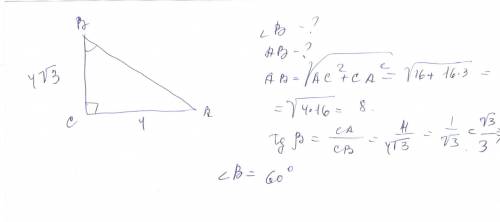 B
4√3
C
4
A
∠B - ?
AB - ?
AB = √AC² + CA² = √16 + 16·3 =
= √4·16 = 8.
Tg B = CA/CB = 4/4√3 = 1/√3 = √3/3
∠B = 60°